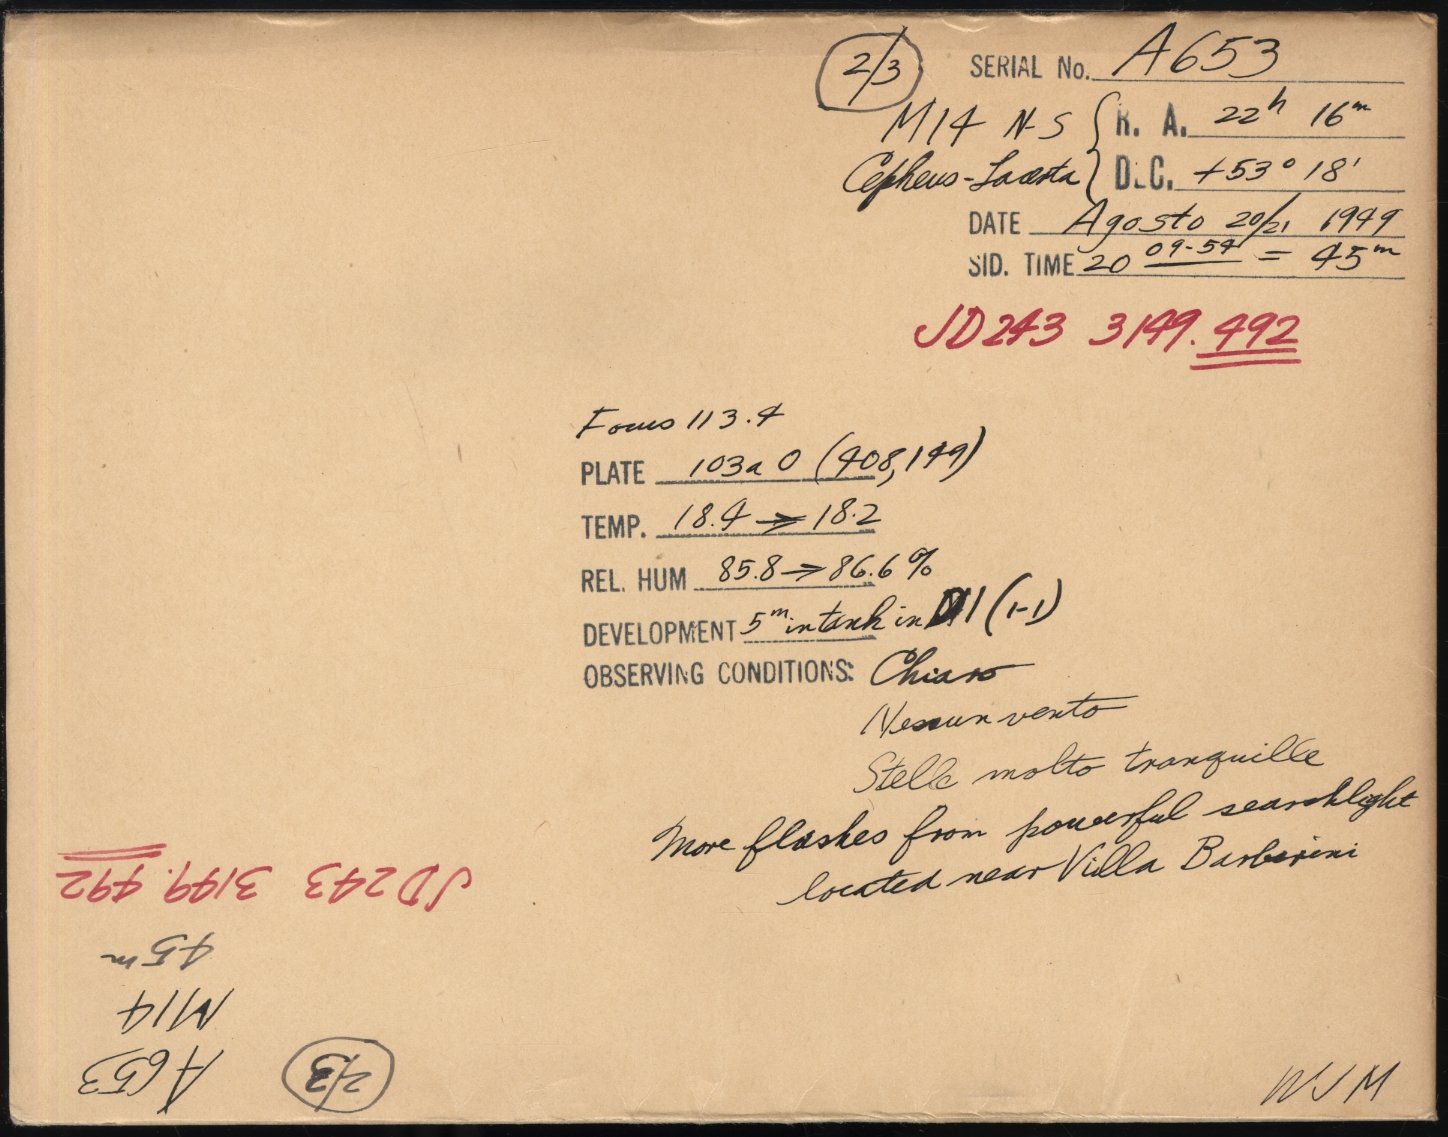 2/3
SERIAL No. A653
M14 N-S { R. A. 22h 16m
Cepheus-Lacerta } DEC. +53° 18'
DATE Agosto 20/21 1949
SID. TIME 20 09-54 = 45m
JD243 3149.492
Focus 113.4
PLATE 103a O (408,149)
TEMP. 18.4 → 18.2
REL. HUM 85.8 → 86.6%
DEVELOPMENT 5m in tank in D11 (1-1)
OBSERVING CONDITIONS: Chiaro
Nessun vento
Stelle molto tranquille
More flashes from powerful searchlight
located near Villa Barberini
WJM
2/3
A653
M14
45m
JD243 3149.492